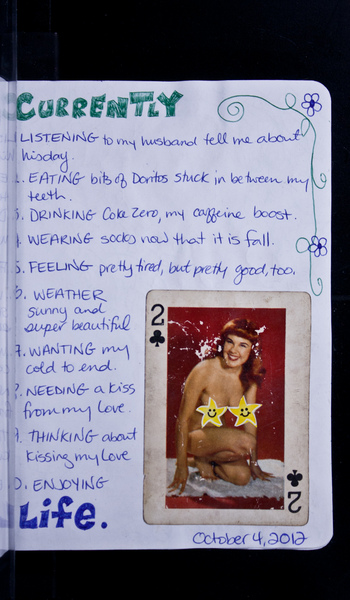 CURRENTLY
LISTENING to my husband tell me about
his day.
2. EATING bits of Doritos stuck in between my
teeth.
3. DRINKING Coke Zero, my caffeine boost.
4. WEARING socks now that it is fall.
5. FEELING pretty tired, but pretty good, too.
6. WEATHER
sunny and
super beautiful
7. WANTING my
cold to end.
8. NEEDING a kiss
from my love.
9. THINKING about
kissing my love
0. ENJOYING
Life.
2
2
October 4, 2012